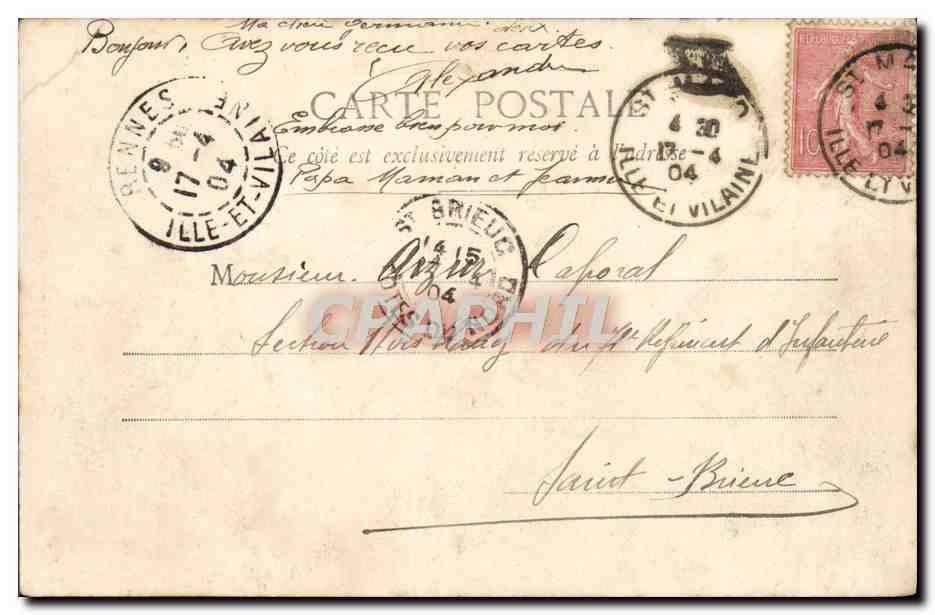 Ma chère Germaine.
Bonjour, Avez vous reçu vos cartes.
Alexandre
CARTE POSTALE
Embrasse bien pour moi
Ce côté est exclusivement réservé à l'adresse
Papa Maman et Jeanne
RENNES
9
17-4
04
ILLE-ET-VILAINE
ST M
4 30
17-4
04
ILLE ET VILAINE
REPUBLIQUE
10
ST M
4 3
17
04
ILLE ET V
ST BRIEUC
14 15
4
04
COTES DU NORD
Monsieur Caporal
CPARHIL
Section Hors Rang du Régiment d'Infanterie
Saint-Brieuc